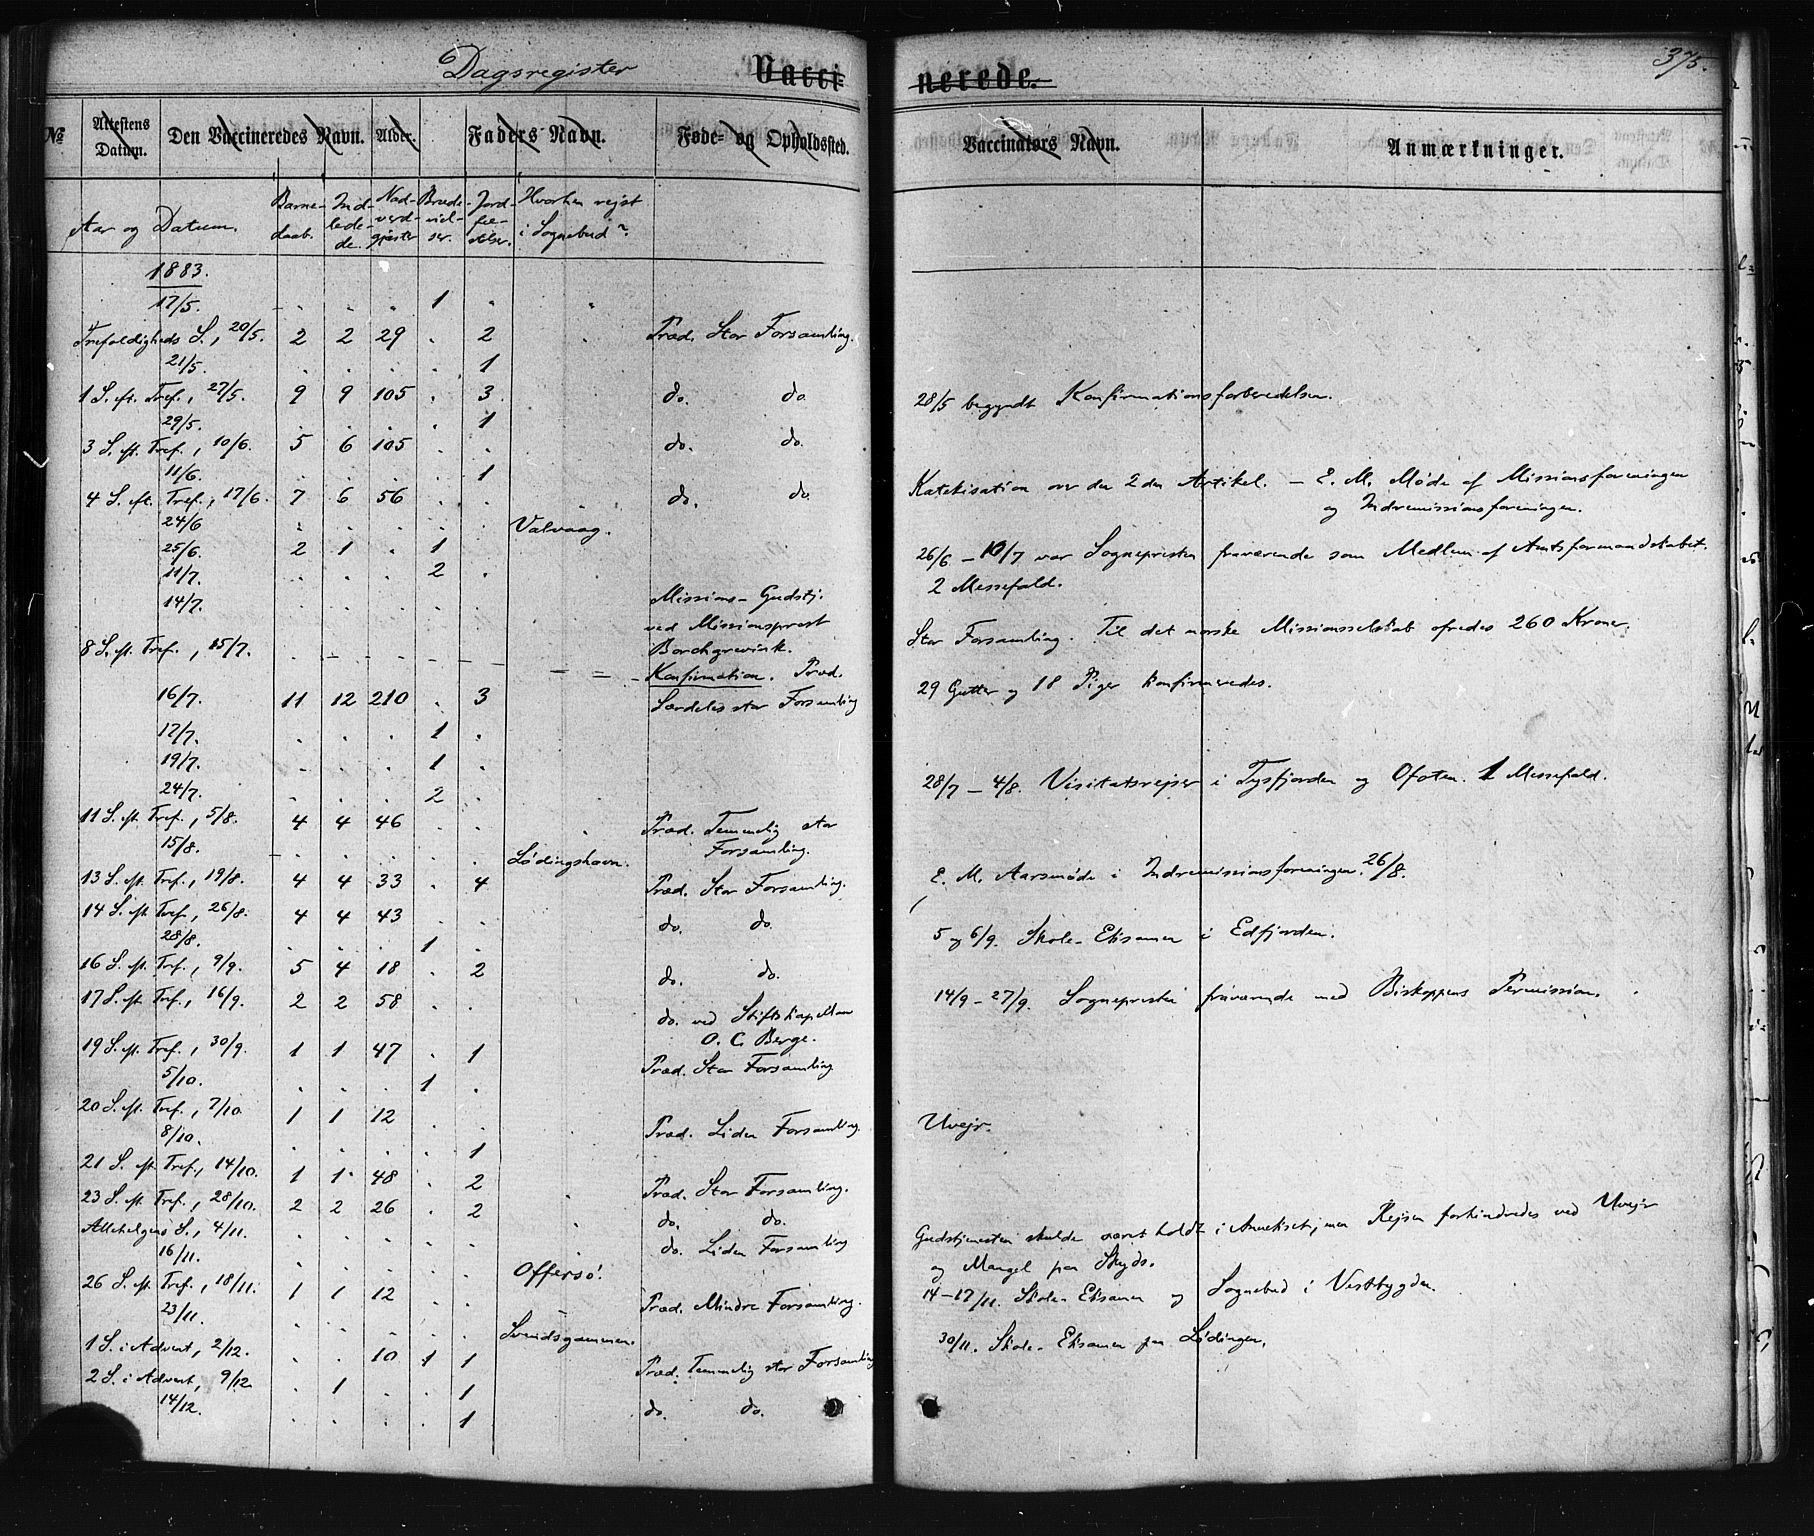 Dagsregister Vacci nerede. 375.
No Attestens Datum. Den Vaccineredes Navn. Alder. Faders Navn. Føde- og Opholdssted. Vaccinators Navn. Anmærkninger.
Aar og Datum. Barne-daab. Ind-lede-de. Nad-verd-gjæster Brude-viel-ser. Jord-fæ-stelser. Hvorhen rejst i Sognebud?
1883.
17/5. . . . 1 . .
Trefoldigheds S., 20/5. 2 2 29 . 2 . Præd. Stor Forsamling.
21/5. . . . . 1
1 S. eft. Tref., 27/5. 9 9 105 . 3 do. do. 28/5 begyndt Konfirmationsforberedelsen.
29/5. . . . . 1
3 S. eft. Tref., 10/6. 5 6 105 . . do. do.
11/6. . . . . 1
4 S. eft. Tref., 17/6. 7 6 56 . . do. do. Katekisation over den 2den Artikel. – E. M. Møde af Missionsforeningen
og Indremissionsforeningen.
24/6 . . . . . Valvaag.
25/6. 2 1 . 1 26/6 – 10/7 var Sognepresten fraværende som Medlem af Amtsformandskabet.
11/7. . . . 2 . 2 Messefald.
14/7. . . . . . Missions-Gudstj.
ved Missionsprest
8 S. eft. Tref., 15/7. . – – – – – Borchgrevink. Stor Forsamling. Til det norske Missionsselskab ofredes 260 Kroner.
– = – Konfirmation. Præd. 29 Gutter og 18 Piger konfirmeredes.
16/7. 11 12 210 . 3 Særdeles stor Forsamling
17/7. . . . 1 .
19/7. . . . 1 .
24/7. . . . 2 . 28/7 – 4/8. Visitatsrejser i Tysfjorden og Ofoten. 1 Messefald.
11 S. eft. Tref., 5/8. 4 4 46 . . . Præd. Temmelig stor
Forsamling.
15/8. – . . . . Lødingshavn.
13 S. eft. Tref., 19/8. 4 4 33 . 4 Præd. Stor Forsamling. E. M. Aarsmøde i Indremissionsforeningen. 26/8.
14 S. eft. Tref., 26/8. 4 4 43 . . do. do.
28/8. . . . 1 . 5 og 6/9. Skole-Eksamen i Edfjorden.
16 S. eft. Tref., 9/9. 5 4 18 . 2 do. do.
17 S. eft. Tref., 16/9. 2 2 58 . . do. ved Stiftskapellan 14/9 – 27/9. Sognepresten fraværende med Biskoppens Permission.
O. C. Berge.
19 S. eft. Tref., 30/9. 1 1 47 . 1 Præd. Stor Forsamling
5/10. . . . 1 .
20 S. eft. Tref., 7/10. 1 1 12 . . . Præd. Liden Forsamling. Uvejr.
8/10. . . . . 1
21 S. eft. Tref., 14/10. 1 1 48 . 2 . Præd. Stor Forsamling.
23 S. eft. Tref., 28/10. 2 2 26 . 2 . do. do.
Allehelgens S., 4/11. . . . . . . do. Liden Forsamling Gudstjenesten skulde været holdt i Annekset, men Rejsen forhindredes ved Uvejr
og Mangel paa Skyds.
16/11. . . . . . Offersø.
26 S. eft. Tref., 18/11. 1 1 12 . . Præd. Mindre Forsamling. 14–17/11. Skole-Eksamen og Sognebud i Vestbygden.
23/11. . . . . . Svendsgammen.
1 S. i Advent, 2/12. . . 10 1 1 Præd. Temmelig stor Forsamling 30/11. Skole-Eksamen paa Lødingen.
2 S. i Advent, 9/12 . 1 . . 1 do. do.
14/12. . . . . 1